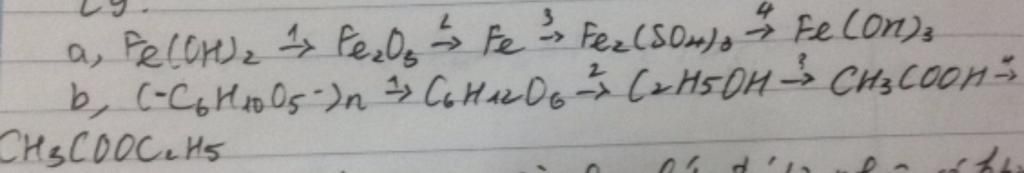 a, Fe(OH)₂ →¹ Fe₂O₃ →² Fe →³ Fe₂(SO₄)₃ →⁴ Fe(OH)₃
b, (-C₆H₁₀O₅-)n →¹ C₆H₁₂O₆ →² C₂H5OH →³ CH₃COOH →⁴
CH₃COOC₂H₅